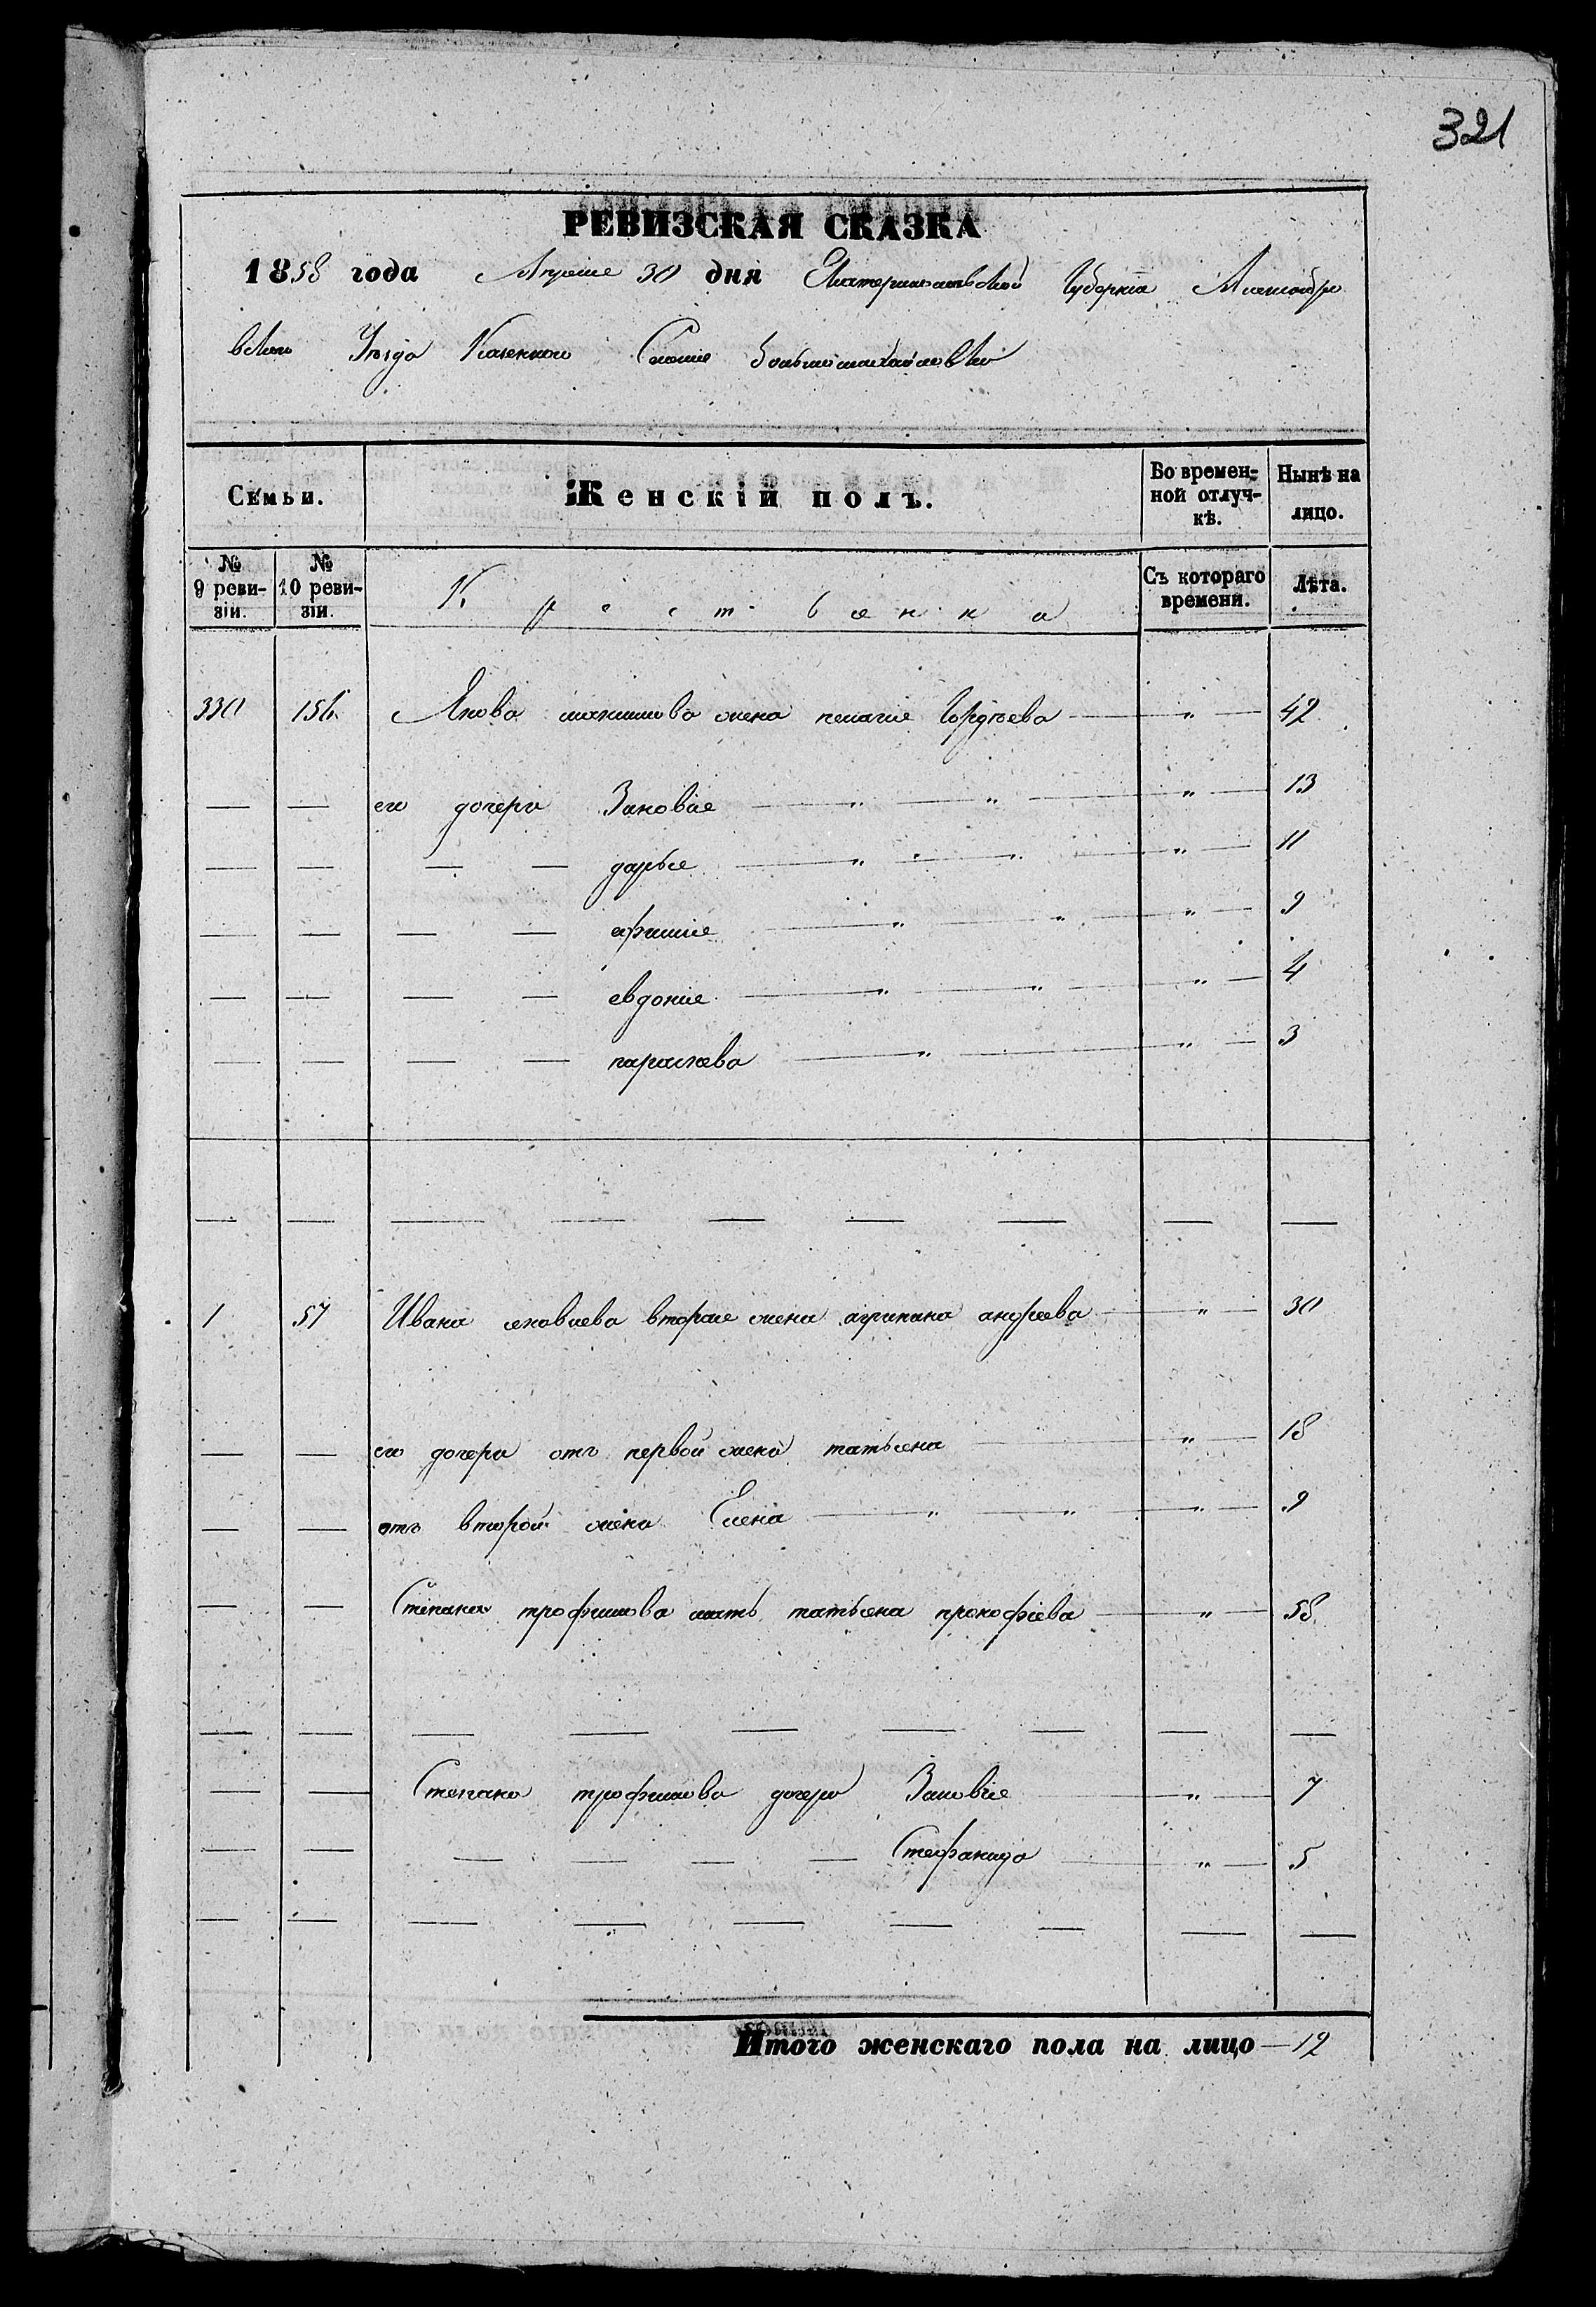 321
РЕВИЗСКАЯ СКАЗКА
1858 года Апреля 30 дня Екатеринославской Губернiи Александро
вскаго Уезда Казеннаго Селенiя большемихайловки
Семьи. Женскiй полъ. Во времен-ной отлуч-кѣ. Нынѣ на лицо.
№ 9 реви-зiи. № 10 реви-зiи. Съ котораго времени. Лѣта.
330 156 Якова жена пелагия Гордѣева — " — 42
— — его дочери Зановiя — " — " — " — 13
— — — — дарья — " — " — " — 11
— — — — афимiя — " — " — " — 9
— — — — евдокiя — " — " — " — 4
— — — — параскева — " — " — 3
— — — — — — — — —
1 57 Ивана яковлева вторая жена агрипина андреева — " — 30
— — его дочери отъ первой жены татьяна — " — 18
— — отъ второй жены Елена — " — " — " — 9
— — Степана трофимова мать татьяна прокофiева — " — 58
— — — — — — — — —
— — Степана трофимова дочери Зановiя — " — 7
— — — — — — Стефанида — " — 5
— — — — — — — — —
Итого женскаго пола на лицо — 12